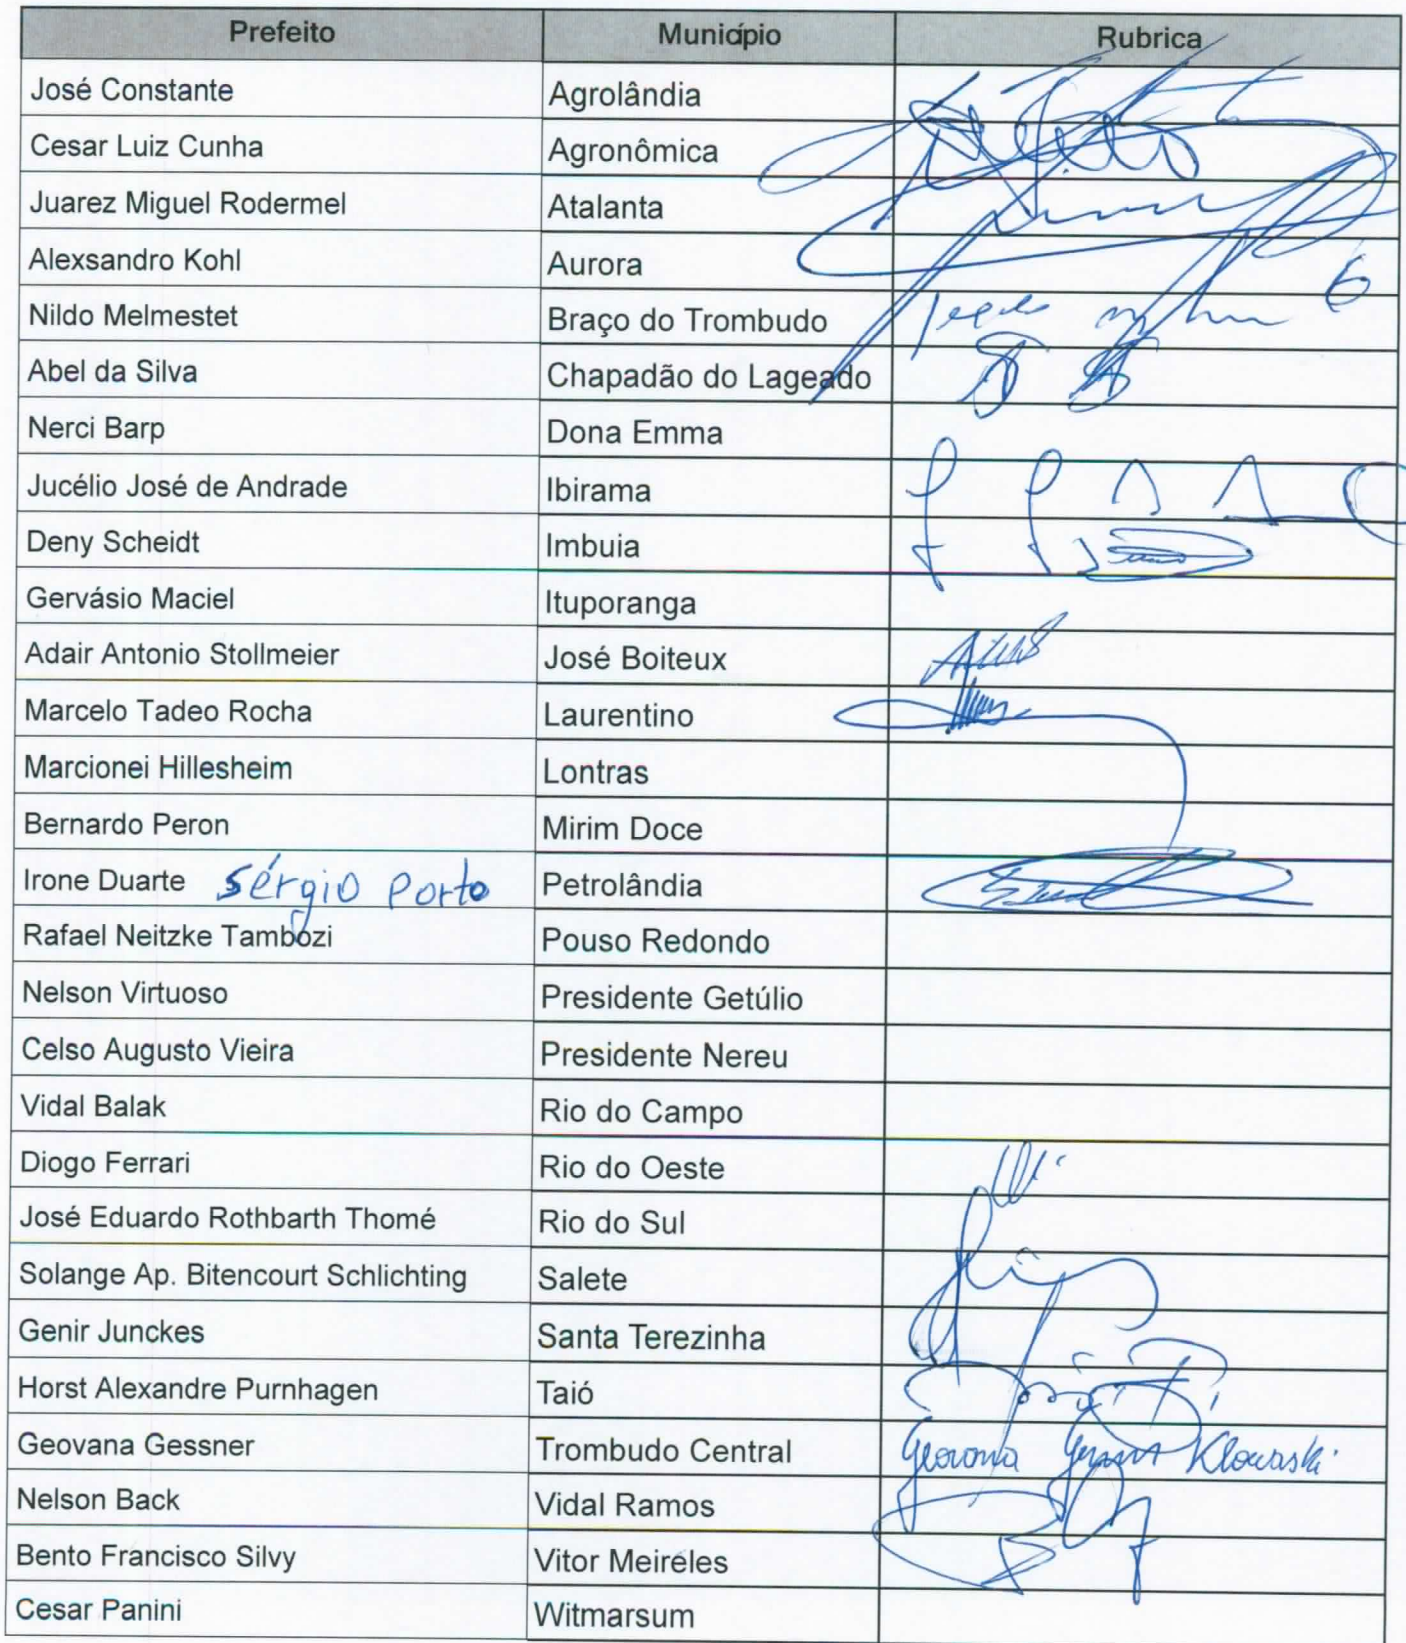 Prefeito Município Rubrica
José Constante Agrolândia
Cesar Luiz Cunha Agronômica
Juarez Miguel Rodermel Atalanta
Alexsandro Kohl Aurora
Nildo Melmestet Braço do Trombudo
Abel da Silva Chapadão do Lageado
Nerci Barp Dona Emma
Jucélio José de Andrade Ibirama
Deny Scheidt Imbuia
Gervásio Maciel Ituporanga
Adair Antonio Stollmeier José Boiteux
Marcelo Tadeo Rocha Laurentino
Marcionei Hillesheim Lontras
Bernardo Peron Mirim Doce
Irone Duarte Sérgio Porto Petrolândia
Rafael Neitzke Tambozi Pouso Redondo
Nelson Virtuoso Presidente Getúlio
Celso Augusto Vieira Presidente Nereu
Vidal Balak Rio do Campo
Diogo Ferrari Rio do Oeste
José Eduardo Rothbarth Thomé Rio do Sul
Solange Ap. Bitencourt Schlichting Salete
Genir Junckes Santa Terezinha
Horst Alexandre Purnhagen Taió
Geovana Gessner Trombudo Central Geovana Gessner Klowaski
Nelson Back Vidal Ramos
Bento Francisco Silvy Vitor Meireles
Cesar Panini Witmarsum